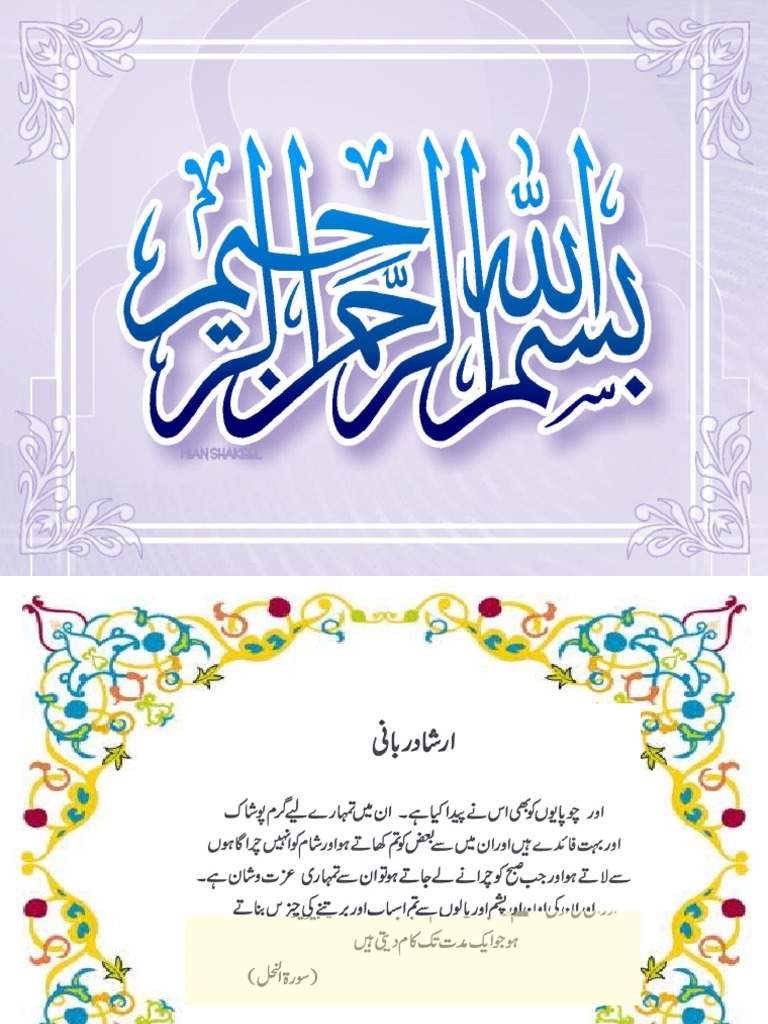 بسم الله الرحمن الرحيم
MIAN SHAKEEL
ارشاد ربانی
اور چوپایوں کو بھی اس نے پیدا کیا ہے۔ ان میں تمہارے لیے گرم پوشاک
اور بہت فائدے ہیں اور ان میں سے بعض کو تم کھاتے ہو اور شام کو انہیں چراگاہوں
سے لاتے ہو اور جب صبح کو چرانے لے جاتے ہو تو ان سے تمہاری عزت و شان ہے۔
کی اون اور پشم اور بالوں سے تم اسباب اور برتنے کی چیزیں بناتے
ہو جو ایک مدت تک کام دیتی ہیں
(سورۃ النحل)